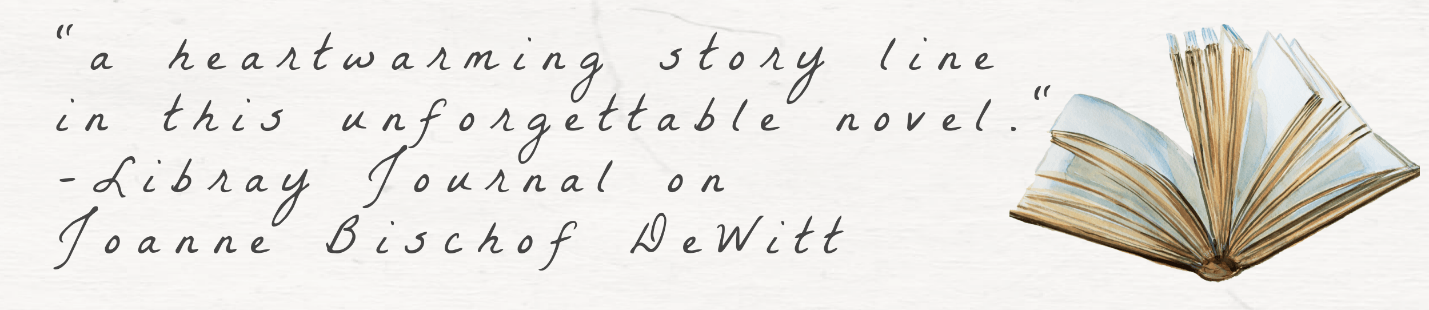 “a heartwarming story line
in this unforgettable novel.“
-Libray Journal on
Joanne Bischof DeWitt